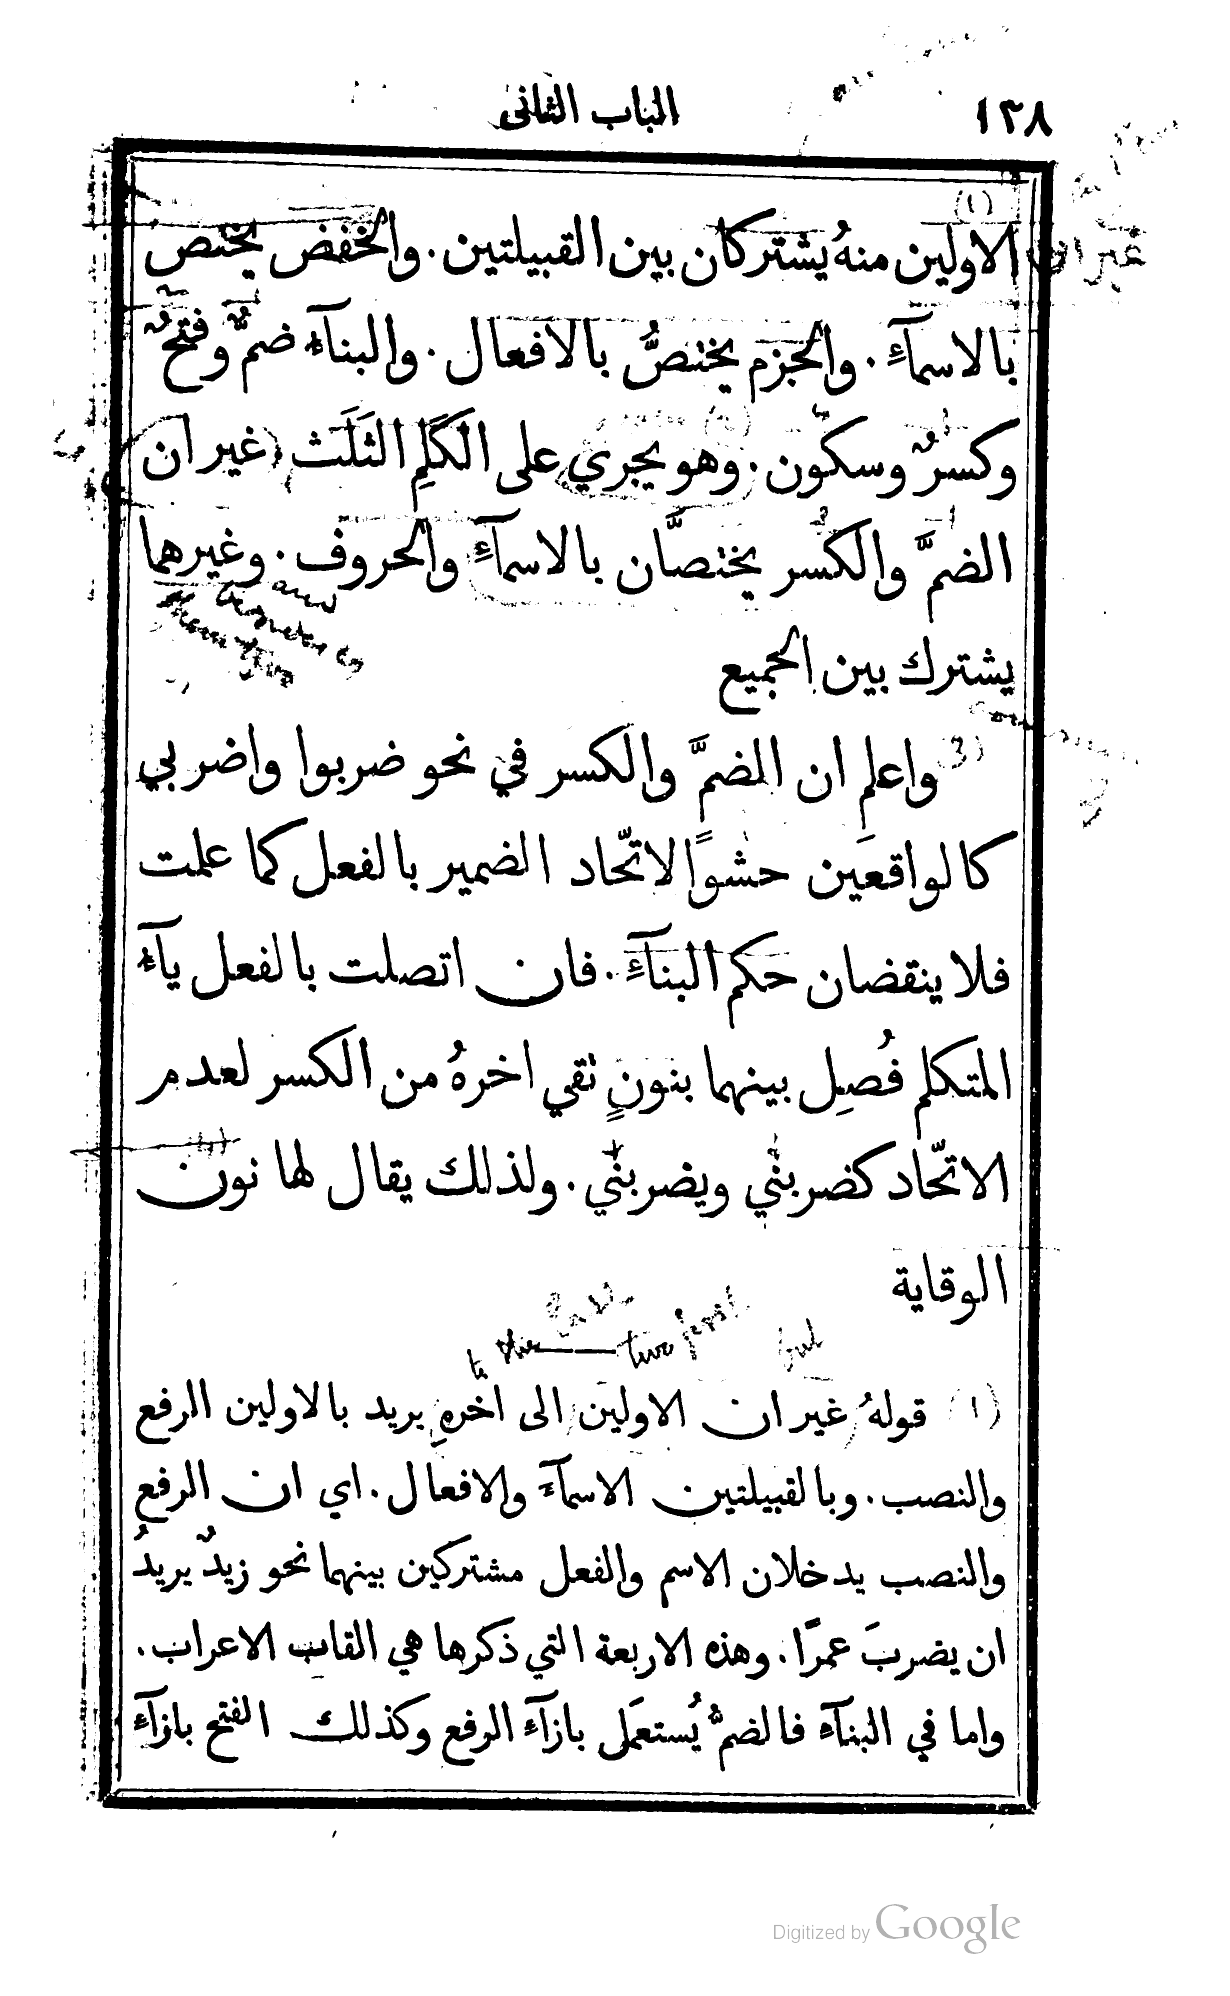 الباب الثاني ١٣٨
الاولين منهُ يشتركان بين القبيلتين. والخفض يختص
بالاسمآءِ. والجزم يختصُّ بالافعال. والبنآءُ ضمٌّ وفتحٌ
وكسرٌ وسكون. وهو يجري على الكَلِمِ الثَلَث غير ان
الضمَّ والكسر يختصَّان بالاسمآءِ والحروف. وغيرهما
يشترك بين الجميع
واعلم ان الضمَّ والكسر في نحو ضربوا واضربي
كالواقعَين حشوًا لاتّحاد الضمير بالفعل كما علمت
فلا ينقضان حكم البنآءِ. فان اتصلت بالفعل يآءُ
المتكلم فُصِل بينهما بنونٍ تقي اخرهُ من الكسر لعدم
الاتّحاد كضربنْي ويضربنْي. ولذلك يقال لها نون
الوقاية
to the last two first but
(١) قولهُ غير ان الاولين الى اخرهِ يريد بالاولين الرفع
والنصب. وبالقبيلتين الاسمآءَ والافعال. اي ان الرفع
والنصب يدخلان الاسم والفعل مشتركين بينهما نحو زيدٌ يريدُ
ان يضربَ عمرًا. وهذه الاربعة التي ذكرها هي القاب الاعراب.
واما في البنآءِ فالضمُّ يُستعمَل بازآءِ الرفع وكذلك الفتح بازآءِ
Digitized by Google